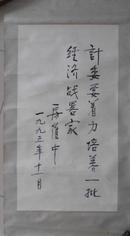 计委要着力培养一批
经济战略家
房维中
一九九三年十一月